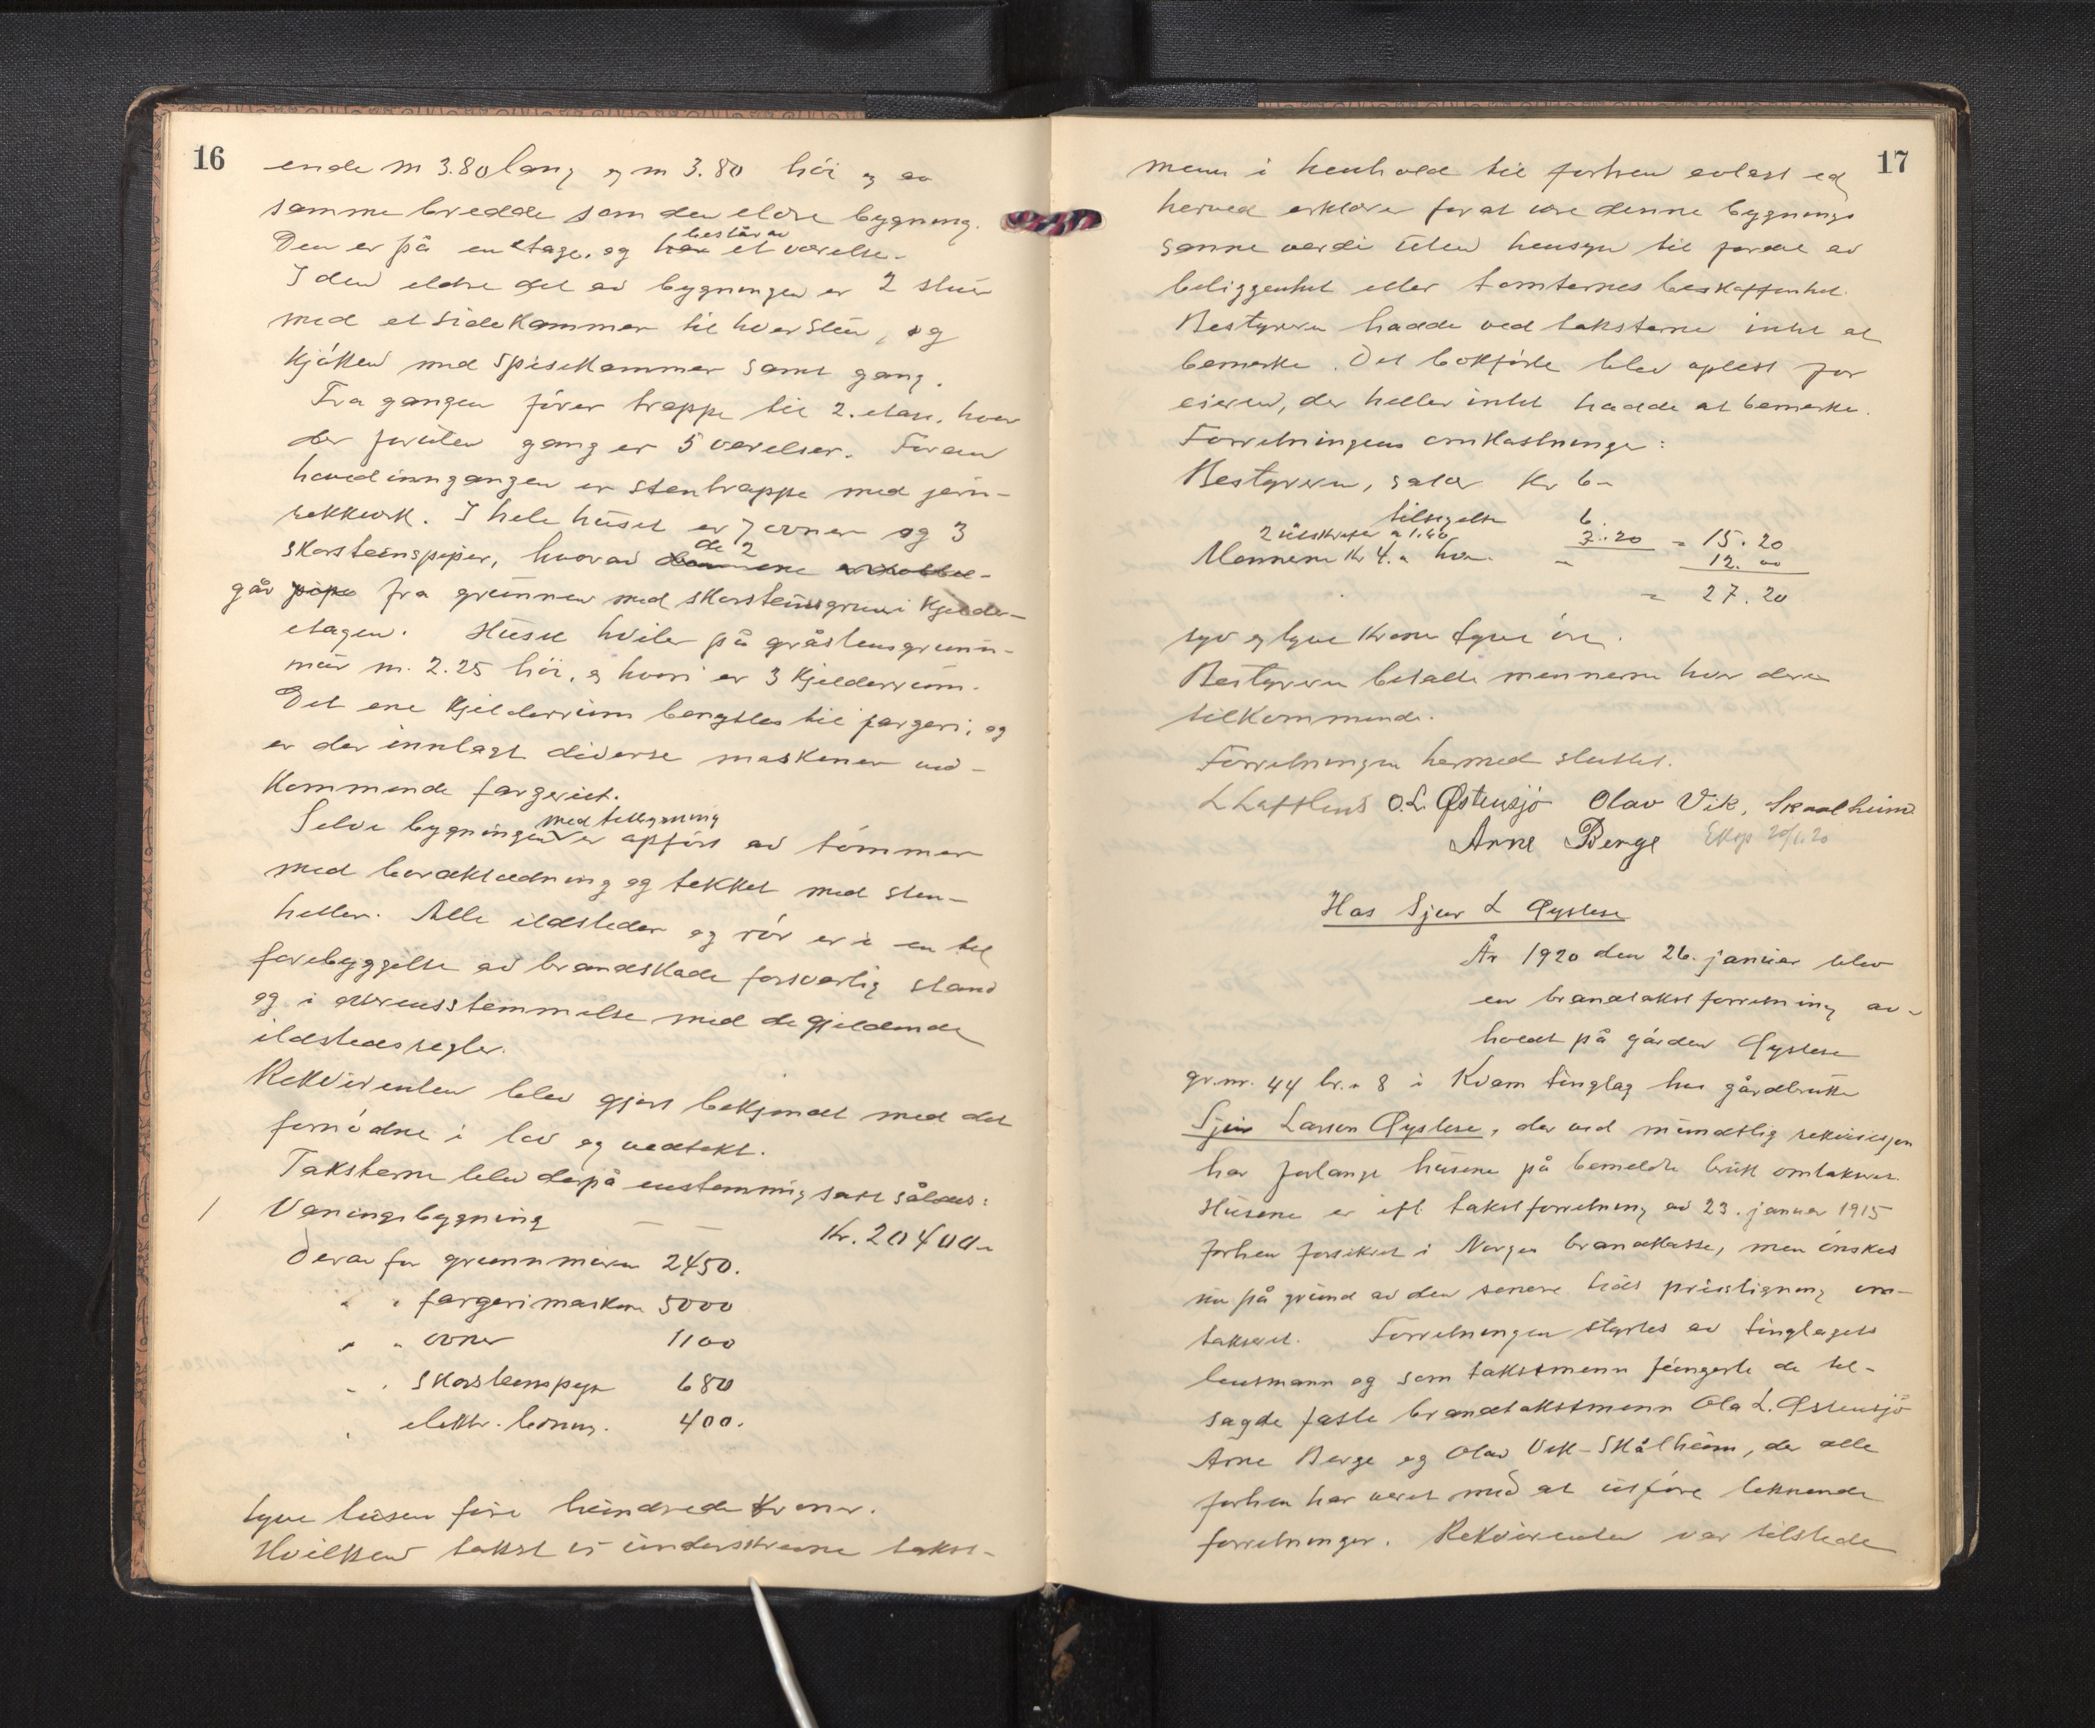 16
ende m 3.80 lang og m 3.80 høi og av
samme bredde som den eldre bygning.
Den er på en etage, og består av et værelse.
I den eldre del av bygningen er 2 stuer
med et sidekammer til hver stue, og
kjøkken med spisekammer samt gang.
Fra gangen fører trappe til 2. etase, hvor
der foruten gang er 5 værelser. Foran
hovedinngangen er stentrappe med jern-
rekkverk. I hele huset er 7 ovner og 3
skorsteinspiper, hvorav de 2
går fra grunnen med skorsteinsgrue i kjelder-
etagen. Huset hviler på gråstensgrunn-
mur m. 2.25 høi, og hvori er 3 kjelderrum.
Det ene kjelderrum benyttes til fargeri, og
er der innlagt diverse maskener ved-
kommende fargeriet.
Selve bygningen med tilbygning er opført av tømmer
med bordklædning og tekket med sten-
heller. Alle ildsteder og rør er i en til
forebyggelse av brandskade forsvarlig stand
og i overensstemmelse med de gjeldende
ildstedsregler.
Rekvirenten blev gjort bekjendt med det
fornødne i lov og vedtekt.
Taksterne blev derpå enstemmig satt således:
1 Vaningsbygning — — Kr. 20400.-
Derav for grunnmuren 2450.
" " fargerimaskene 5000
" " ovner 1100
" " skorsteinspiper 680
" elektr. ledning. 400.
tyve tusen fire hundrede kroner.
Hvilken takst vi underskrevne takst-
17
menn i henhold til forhen avlagt ed
herved erklærer for at være denne bygnings
sanne verdi uten hensyn til fordel av
beliggenhet eller tomternes beskaffenhet.
Bestyreren hadde ved taksterne intet at
bemerke. Det bokførte blev oplest for
eieren, der heller intet hadde at bemerke.
Forretningens omkostninger:
Bestyreren, salær Kr 6-
tilsigelse 6.
2 utskrifter a 1.60 3.20 = 15.20
Mennene Kr 4. a hver. - 12.00
= 27.20
syv og tyve kroner tyve øre.
Bestyreren betalte mennerne hver deres
tilkommende.
Forretningen hermed sluttet.
O. L. Østensjö Olav Vik, Skaalheim
Arne Berge Eksp 20/1.20
Hos Sjur L Øystese
År 1920 den 26. januar blev
en brandtakstforretning av-
holdt på gården Øystese
gr.nr. 44 br. " 8 i Kvam tinglag hos gårdbruker
Sjur Larsen Øystese, der ved mundtlig rekvisisjon
har forlangt husene på bemeldte bruk omtaksert.
Husene er ifl. takstforretning av 23. januar 1915
forhen forsikret i Norges brandkasse, men ønskes
nu på grund av den senere tids prisstigning om-
taksert. Forretningen styrtes av tinglagets
lensmann og som takstmenn fungerte de til-
sagde faste brandtakstmenn Ola L. Østensjö
Arne Berge og Olav Vik-Skålheim, der alle
forhen har været med at utføre liknende
forretninger. Rekvirenten var tilstede